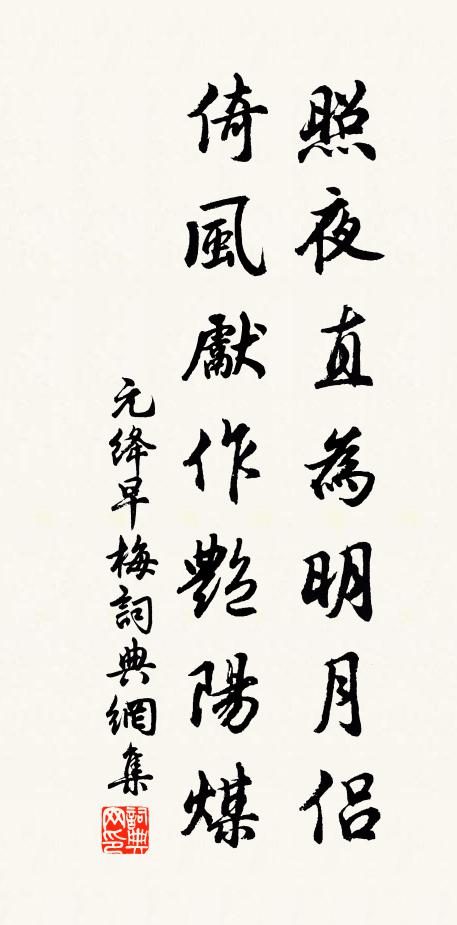 照夜直為明月侶
倚風獻作艷陽煤
元绛早梅詞典網集
詞典网印